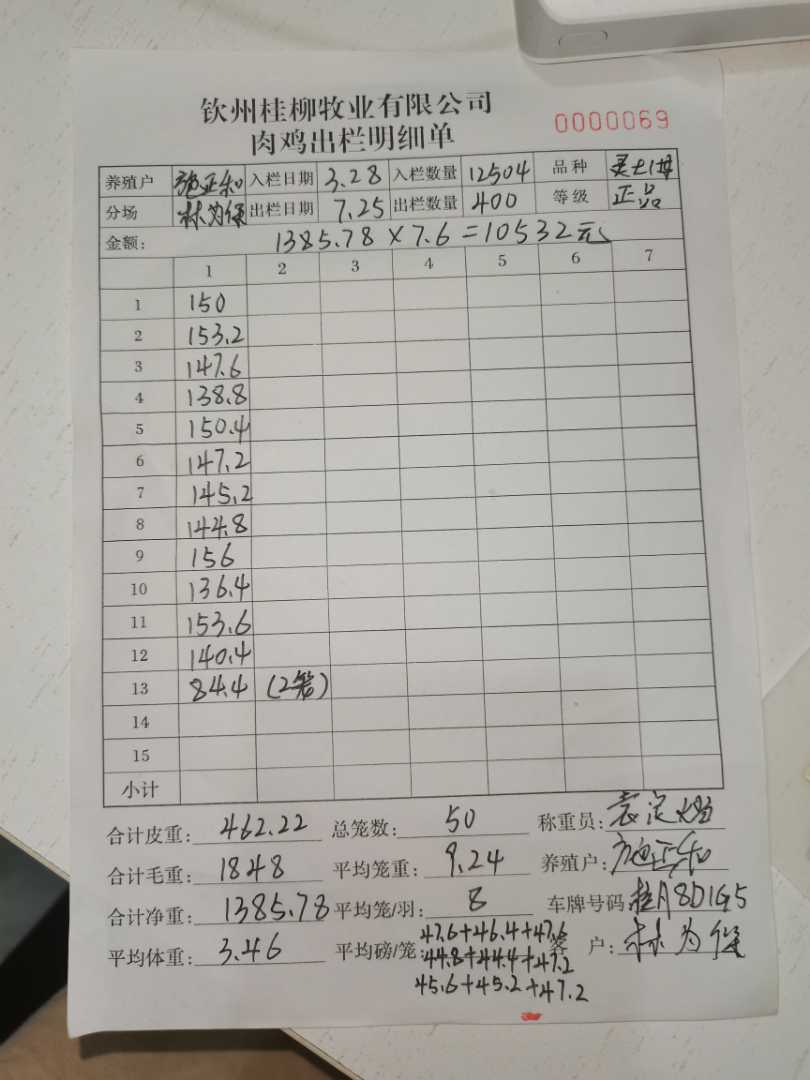 钦州桂柳牧业有限公司
肉鸡出栏明细单
0000069
养殖户 施正和 入栏日期 3.28 入栏数量 12504 品种
分场 林为保 出栏日期 7.25 出栏数量 400 等级 正品
金额: 1385.78×7.6=10532元
1 2 3 4 5 6 7
1 150
2 153.2
3 147.6
4 138.8
5 150.4
6 147.2
7 145.2
8 144.8
9 156
10 136.4
11 153.6
12 140.4
13 84.4 (2笼)
14
15
小计
合计皮重: 462.22 总笼数: 50 称重员:
合计毛重: 1848 平均笼重: 9.24 养殖户: 施正和
合计净重: 1385.78 平均笼/羽: 8 车牌号码: 桂A8D1G5
平均体重: 3.46 平均磅/笼: 47.6+46.4+47.6 客户: 林为保
44.8+44.4+47.2
45.6+45.2+47.2